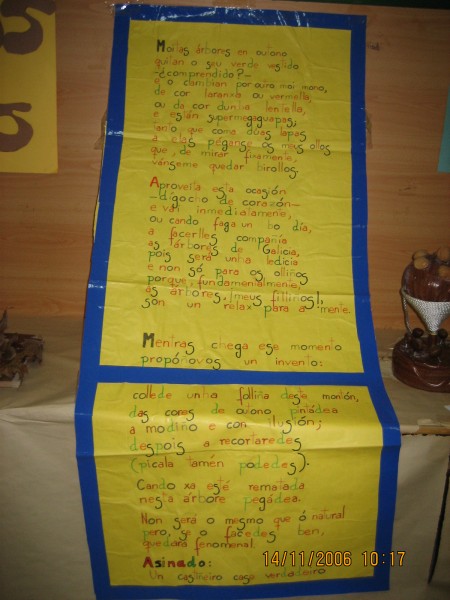 Moitas árbores en outono
quitan o seu verde vestido
-¿comprendido?-
e o cambian por outro moi mono,
de cor laranxa ou vermella,
ou da cor dunha lentella,
e están supermegaguapas;
tanto que coma dúas lapas
a elas péganse os meus ollos
que, de mirar fixamente,
vánseme quedar birollos.
Aproveita esta ocasión
-dígocho de corazón-
e vai inmediatamente,
ou cando faga un bo día,
a facerlles compañía
ás árbores de Galicia,
pois será unha ledicia
e non só para os olliños
porque, fundamentalmente,
as árbores, ¡meus filliños!,
son un relax para a mente.
Mentras chega ese momento
propóñovos un invento:
collede unha folliña deste montón,
das cores de outono pintádea
a modiño e con ilusión;
despois a recortaredes
(picala tamén podedes).
Cando xa esté rematada
nesta árbore pegádea.
Non será o mesmo que ó natural
pero, se o facedes ben,
quedará fenomenal.
Asinado:
Un castiñeiro casa verdadeiro
14/11/2006 10:17